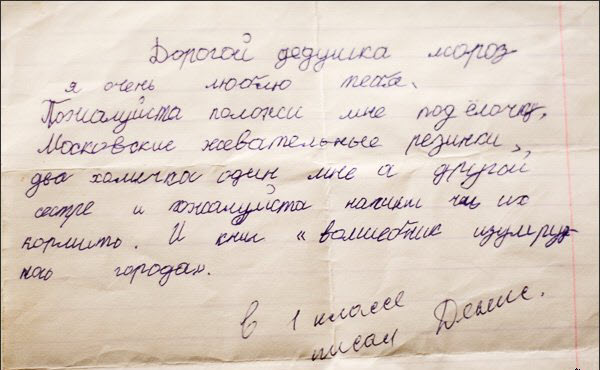 Дорогой дедушка мороз
я очень люблю тебя.
Пожалуйста положи мне под ёлочку,
Московские жевательные резинки,
два хомячка один мне а другой
сестре и пожалуйста напиши чем их
кормить. И книг «волшебник изумруд
ного города».
в 1 классе
писал Денис.